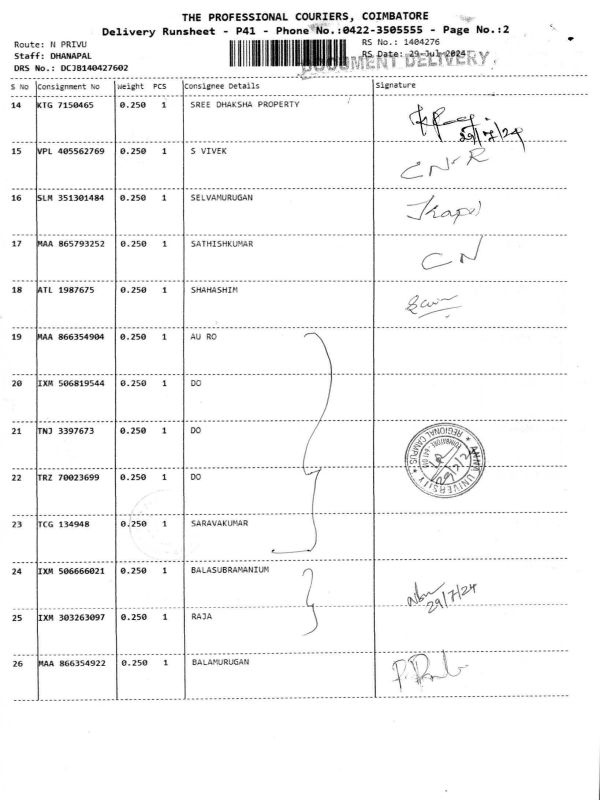 THE PROFESSIONAL COURIERS, COIMBATORE
Delivery Runsheet - P41 - Phone No.:0422-3505555 - Page No.:2
Route: N PRIVU
RS No.: 1404276
Staff: DHANAPAL
RS Date: 29-Jul-2024
DOCUMENT DELIVERY
DRS No.: DCJB140427602
S No Consignment No Weight PCS Consignee Details Signature
14 KTG 7150465 0.250 1 SREE DHAKSHA PROPERTY
29/7/24
15 VPL 405562769 0.250 1 S VIVEK
CN-R
16 SLM 351301484 0.250 1 SELVAMURUGAN
17 MAA 865793252 0.250 1 SATHISHKUMAR
CN
18 ATL 1987675 0.250 1 SHAHASHIM
19 MAA 866354904 0.250 1 AU RO
20 IXM 506819544 0.250 1 DO
21 TNJ 3397673 0.250 1 DO
ANNA UNIVERSITY
REGIONAL CAMPUS
22 TRZ 70023699 0.250 1 DO
23 TCG 134948 0.250 1 SARAVAKUMAR
24 IXM 506666021 0.250 1 BALASUBRAMANIUM
29/7/24
25 IXM 303263097 0.250 1 RAJA
26 MAA 866354922 0.250 1 BALAMURUGAN